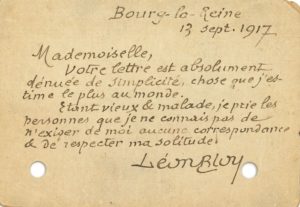 Bourg-la-Reine
13 sept. 1917
Mademoiselle,
Votre lettre est absolument
dénuée de simplicité, chose que j'es-
time le plus au monde.
Etant vieux & malade, je prie les
personnes que je ne connais pas de
n'exiger de moi aucune correspondance
& de respecter ma solitude.
Léon Bloy